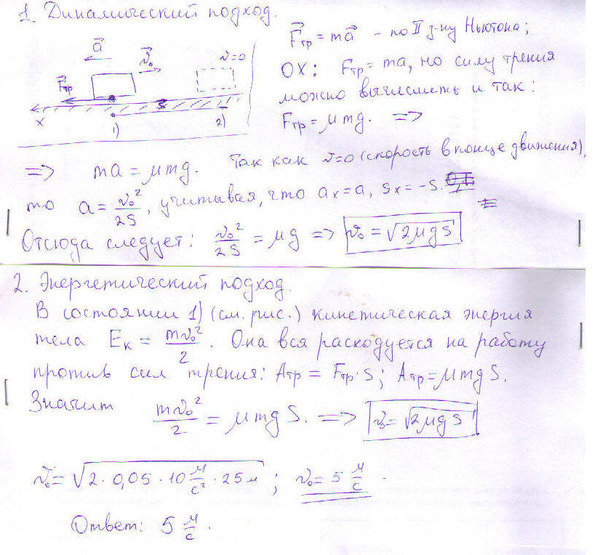 1. Динамический подход.
F⃗тр = ma⃗ – по II з-ну Ньютона;
a⃗ v⃗₀ v=0
F⃗тр
x 1) 2)
OX: Fтр = ma, но силу трения
можно вычислить и так:
Fтр = μmg. =>
=> ma = μmg. Так как v=0 (скорость в конце движения),
то a = v₀²/2S, учитывая, что aₓ = a, sₓ = -s.
Отсюда следует: v₀²/2S = μg => v₀ = √2μgS
2. Энергетический подход.
В состоянии 1) (см. рис.) кинетическая энергия
тела Eк = mv₀²/2. Она вся расходуется на работу
против сил трения: Aтр = Fтр·s; Aтр = μmgS.
Значит mv₀²/2 = μmgS. => v₀ = √2μgS
v₀ = √2·0,05·10 м/с²·25м ; v₀ = 5 м/с.
Ответ: 5 м/с.